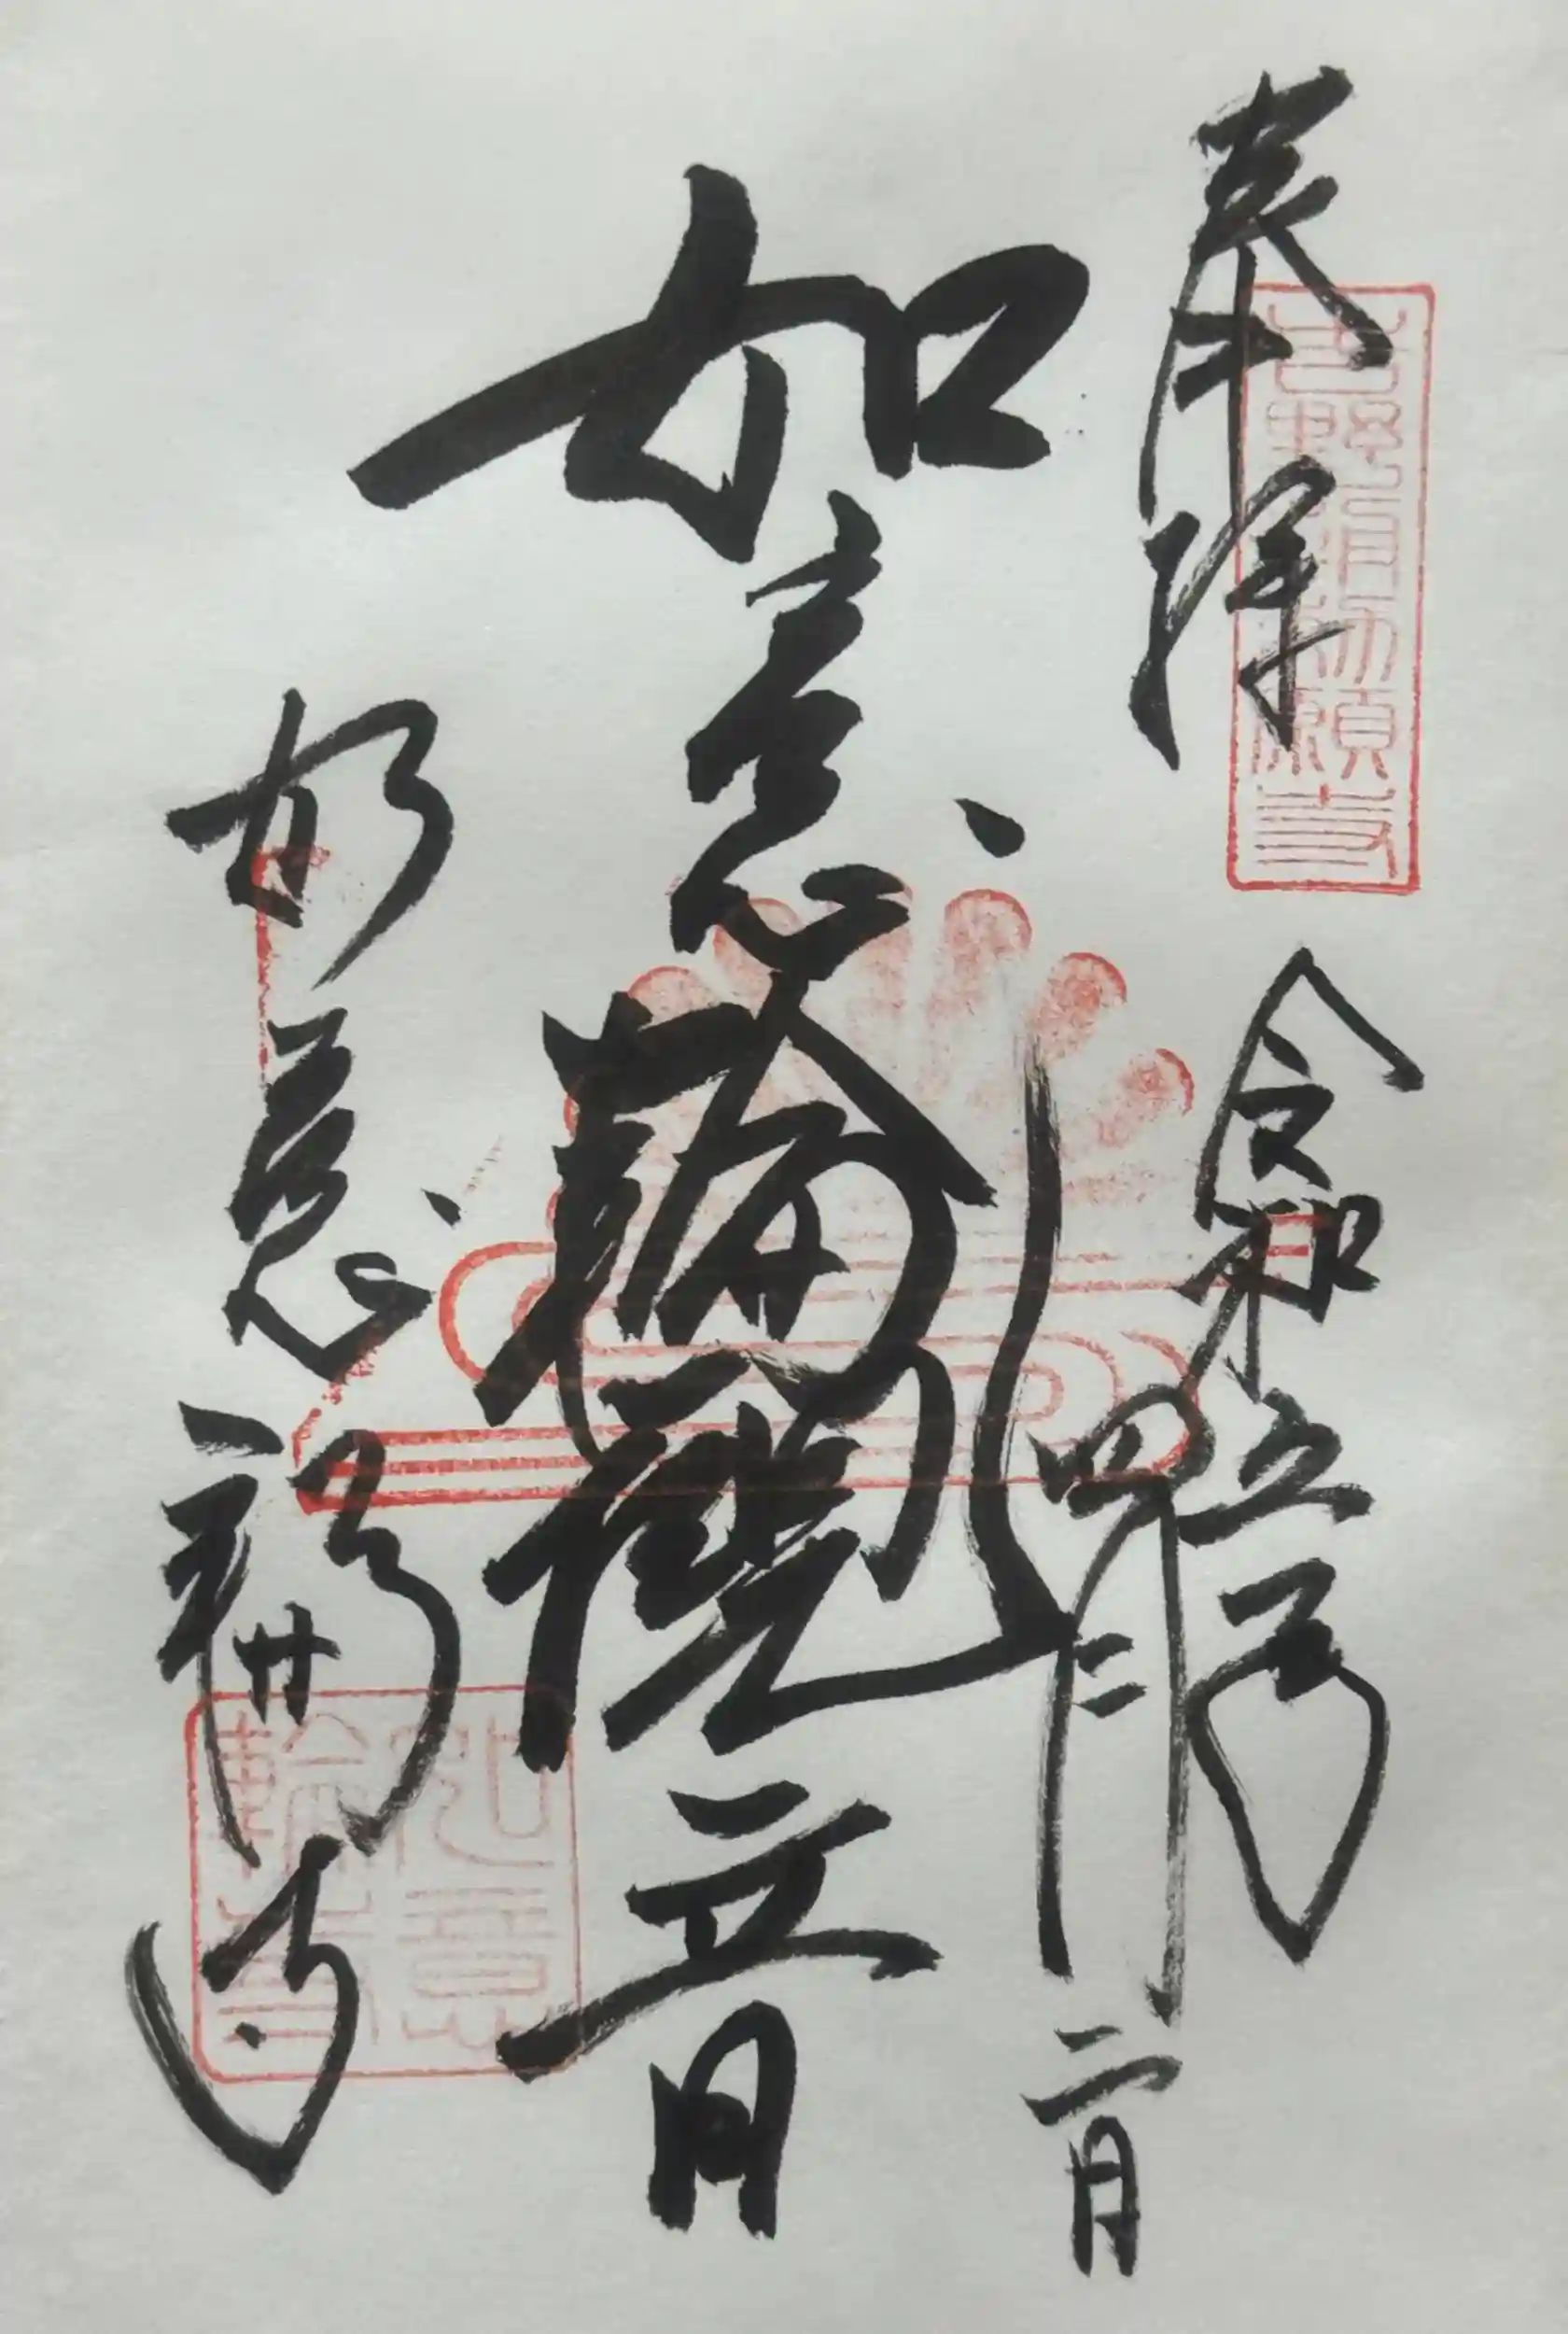 奉拝
吉野 勅願寺
令和五年
四月二日
如意輪観音
如意輪寺
如意輪寺